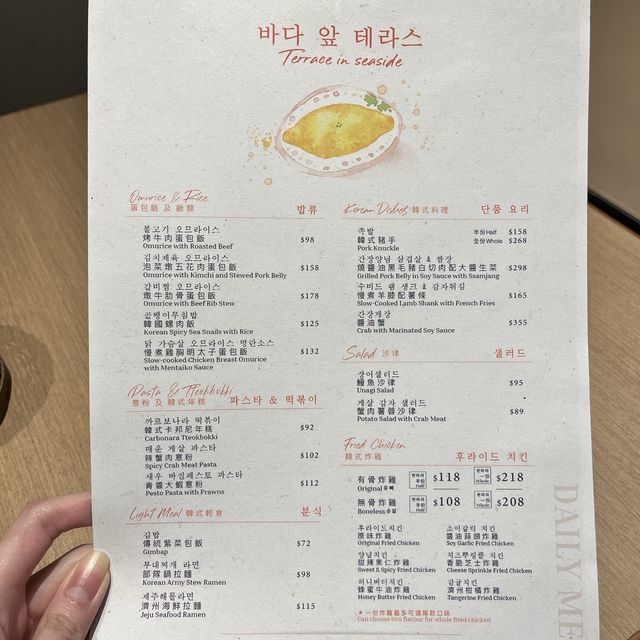 바다 앞 테라스
Terrace in seaside
Omurice & Rice
蛋包飯 及 飯類 밥류
불고기 오므라이스
烤牛肉蛋包飯 $98
Omurice with Roasted Beef
김치제육 오므라이스
泡菜燉五花肉蛋包飯 $158
Omurice with Kimchi and Stewed Pork Belly
갈비찜 오므라이스
燉牛肋骨蛋包飯 $178
Omurice with Beef Rib Stew
골뱅이무침밥
韓國螺肉飯 $125
Korean Spicy Sea Snails with Rice
닭 가슴살 오므라이스 명란소스
慢煮雞胸明太子蛋包飯 $132
Slow-cooked Chicken Breast Omurice
with Mentaiko Sauce
Pasta & Tteokbokki
意粉 及 韓式年糕 파스타 & 떡볶이
까르보나라 떡볶이
韓式卡邦尼年糕 $92
Carbonara Tteokbokki
매운 게살 파스타
辣蟹肉意粉 $102
Spicy Crab Meat Pasta
새우 바질페스토 파스타
青醬大蝦意粉 $112
Pesto Pasta with Prawns
Light Meal 韓式輕食 분식
김밥
傳統紫菜包飯 $72
Gimbap
부대찌개 라면
部隊鍋拉麵 $98
Korean Army Stew Ramen
제주해물라면
濟州海鮮拉麵 $115
Jeju Seafood Ramen
Korean Dishes 韓式料理 단품 요리
족발 半份Half $158
韓式豬手 全份Whole $268
Pork Knuckle
간장양념 삼겹살 & 쌈장
燒醬油黑毛豬白切肉配大醬生菜 $298
Grilled Pork Belly in Soy Sauce with Ssamjang
수비드 램 생크 & 감자튀김
慢煮羊膝配薯條 $165
Slow-Cooked Lamb Shank with French Fries
간장게장
醬油蟹 $355
Crab with Marinated Soy Sauce
Salad 沙律 샐러드
장어샐러드
鰻魚沙律 $95
Unagi Salad
게살 감자 샐러드
蟹肉薯蓉沙律 $89
Potato Salad with Crab Meat
Fried Chicken
韓式炸雞 후라이드 치킨
有骨炸雞 Half $118 Whole $218
Original
無骨炸雞 Half $108 Whole $208
Boneless 순살
후라이드치킨 소이갈릭 치킨
原味炸雞 醬油蒜頭炸雞
Original Fried Chicken Soy Garlic Fried Chicken
양념치킨 치즈뿌링클 치킨
甜辣果仁炸雞 香脆芝士炸雞
Sweet & Spicy Fried Chicken Cheese Sprinkle Fried Chicken
허니버터치킨 감귤치킨
蜂蜜牛油炸雞 濟州柑橘炸雞
Honey Butter Fried Chicken Tangerine Fried Chicken
★一份炸雞最多可選兩款口味
Can choose two flavour for whole fried chicken
DAILY ME